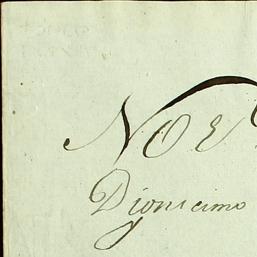 NOE
Dionicimo